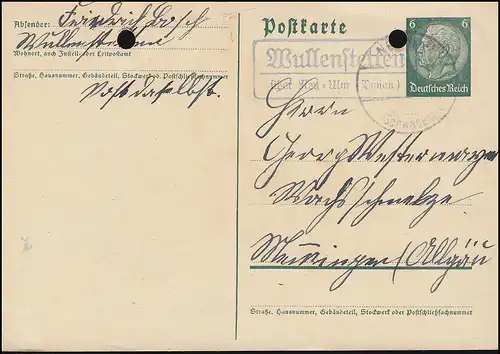 Absender: Friedrich Bosch
Wullenstetten
Wohnort, auch Zustell- oder Leitpostamt
Straße, Hausnummer, Gebäudeteil, Stockwerk od. Postschließfachnummer
Post daselbst.
Postkarte
6 6
Deutsches Reich
Wullenstetten
über Neu-Ulm (Donau)
(Schwab
Herrn
Georg Westermayer
Wachsschmelze
Memmingen (Allgäu
Straße, Hausnummer, Gebäudeteil, Stockwerk oder Postschließfachnummer